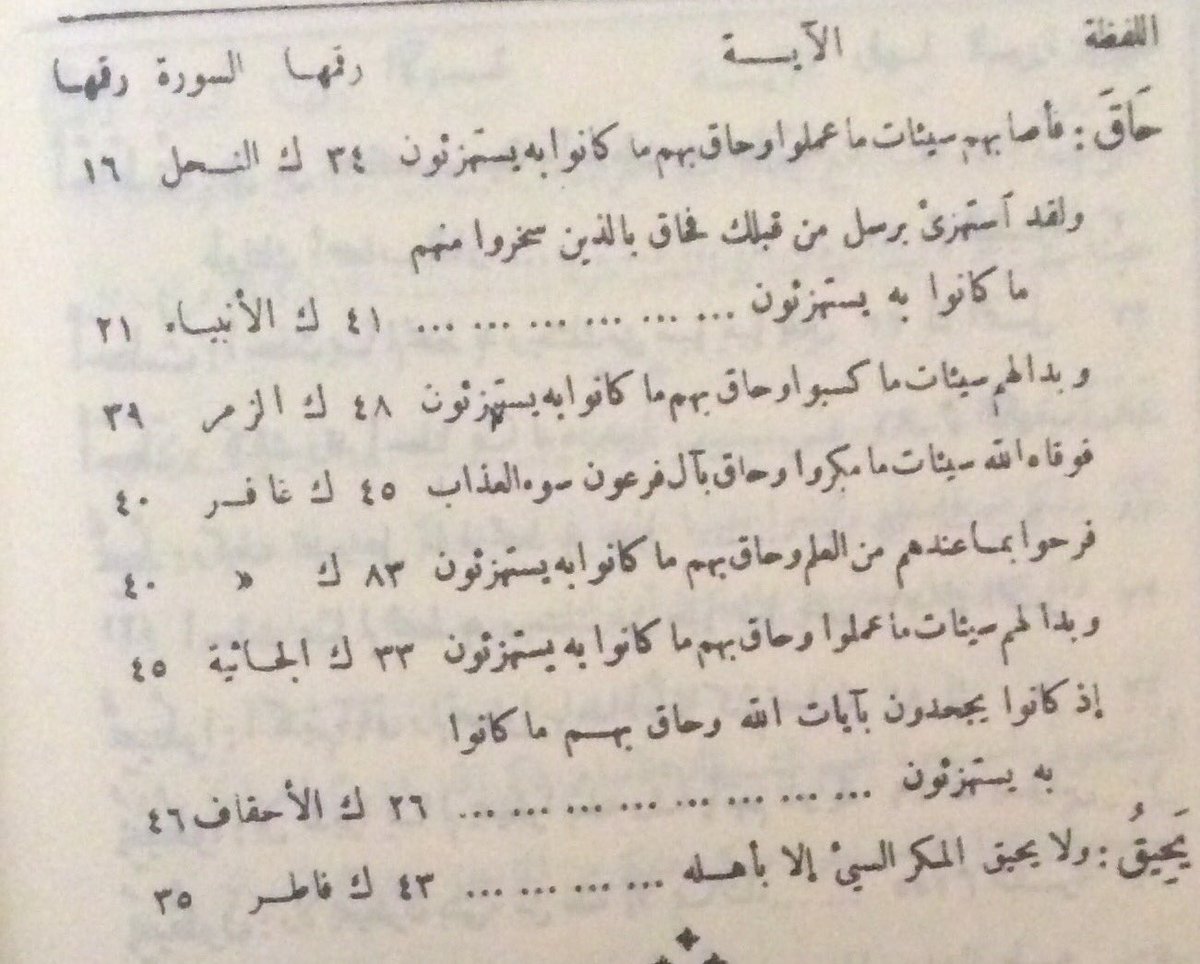 اللفظة الآيــــة رقمهـا السورة رقمهـا
حَاقَ : فأصابهم سيئات ما عملوا وحاق بهم ما كانوا به يستهزئون ٣٤ ك النـحل ١٦
ولقد آستهزئ برسل من قبلك فحاق بالذين سخروا منهم
ما كانوا به يستهزئون ... ... ... ... ... ... ٤١ ك الأنبيـاء ٢١
وبدا لهم سيئات ما كسبوا وحاق بهم ما كانوا به يستهزئون ٤٨ ك الزمر ٣٩
فوقاه الله سيئات ما مكروا وحاق بآل فرعون سوء العذاب ٤٥ ك غافـر ٤٠
فرحوا بمـا عندهم من العلم وحاق بهم ما كانوا به يستهزئون ٨٣ ك » ٤٠
وبدا لهم سيئات ما عملوا وحاق بهم ما كانوا به يستهزئون ٣٣ ك الجـاثية ٤٥
إذ كانوا يجحدون بآيات الله وحاق بهـم ما كانوا
به يستهزئون ... ... ... ... ... ... ... ... ٢٦ ك الأحقاف ٤٦
يَحِيقُ : ولا يحيق المكر السيئ إلا بأهـله ... ... ... ... ٤٣ ك فاطـر ٣٥